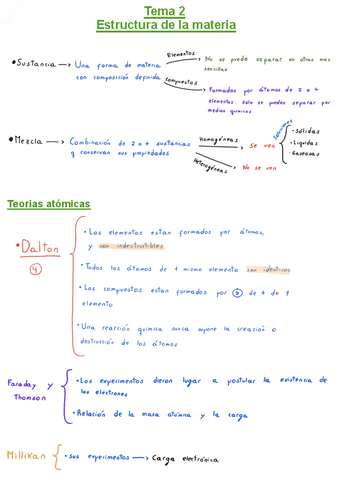 Tema 2
Estructura de la materia
• Sustancia → Una forma de materia
con composición definida
Elementos
No se puede separar en otras mas
sencillas
Compuestos
Formados por átomos de 2 o +
elementos. Solo se pueden separar por
medios quimicos
• Mezcla → Combinación de 2 o + sustancias
y conservan sus propiedades
homogéneas
Se ven
Heterogéneas
No se ven
Soluciones
• Sólidas
• Liquidas
• Gaseosas
Teorias atómicas
• Dalton
4
• Los elementos estan formados por átomos,
y son indestructibles
• Todos los átomos de 1 mismo elemento son identicos
• Los compuestos estan formados por de + de 1
elemento
• Una reacción quimica nunca supone la creación o
destrucción de los átomos
Faraday y
Thomson
• Los experimentos dieron lugar a postular la existencia de
los electrones
• Relación de la masa atómica y la carga
Millikan
• sus experimentos → Carga electrónica